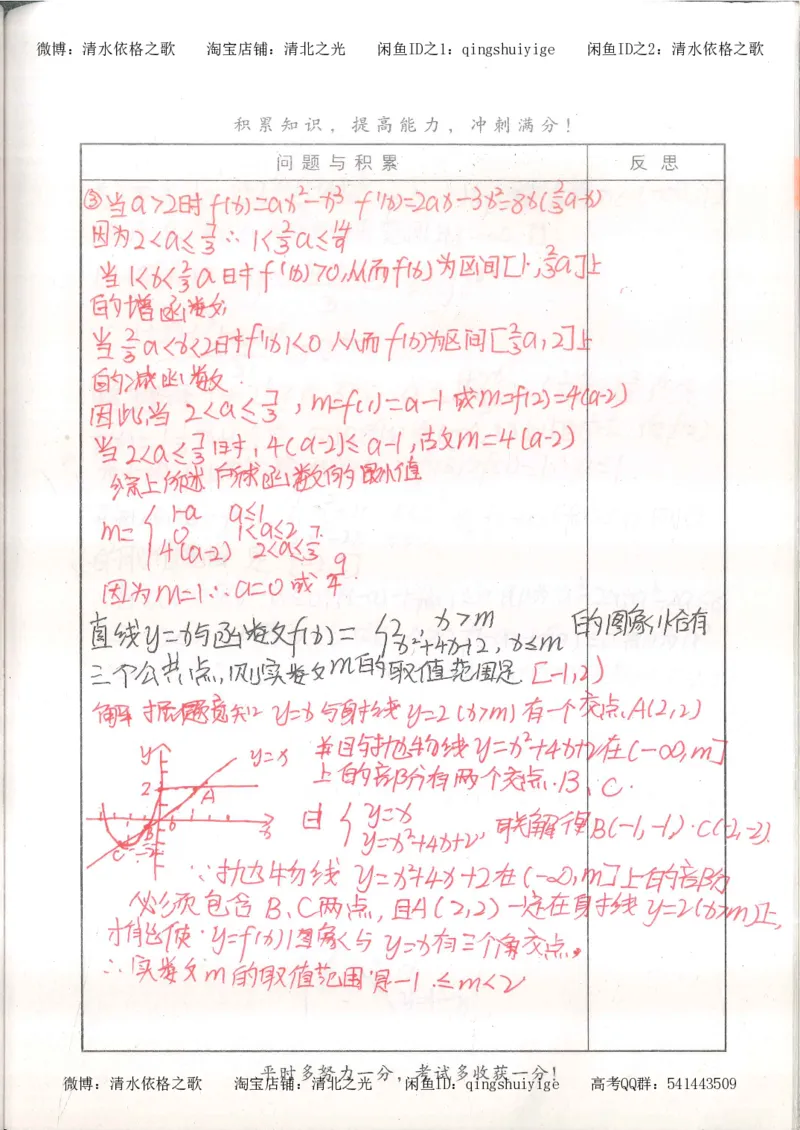 微博：清水依格之歌 淘宝店铺：清北之光 闲鱼ID之1：qingshuiyige 闲鱼ID之2：清水依格之歌
积累知识，提高能力，冲刺满分！
问题与积累 反思
③当a>2时 f(x)=ax²-x³ f'(x)=2ax-3x²=3x(2/3a-x)
因为2<a≤7/3 ∴ 1<2/3a≤14/9
当1<x<2/3a日寸f'(x)>0,从而f(x)为区间[1,2/3a]上
的增函数;
当2/3a<x<2时f'(x)<0 从而f(x)为区间[2/3a,2]上
的减函数.
因此,当 2<a≤7/3，m=f(1)=a-1 或m=f(2)=4(a-2)
当2<a≤7/3时，4(a-2)≤a-1,故m=4(a-2)
综上所述 所求函数的最小值
m={ 1-a a≤1
0 1<a≤2
4(a-2) 2<a≤7/3
因为m=1∴a=0或9/4.
直线y=x与函数f(x)={2, x>m 的图象恰有
x²+4x+2, x≤m
三个公共点,则实数m的取值范围是 [-1,2)
解 根据题意知 y=x与射线y=2(x>m)有一个交点A(2,2)
并且与抛物线y=x²+4x+2在(-∞,m]
上的部分有两个交点.B、C.
y y=x
2 A
B 0 x
C -2
由{ y=x
y=x²+4x+2, 联解得B(-1,-1).C(-2,-2).
∵抛物线 y=x²+4x+2在(-∞,m]上的部分
必须包含B、C两点,且A(2,2)一定在射线y=2(x>m)上,
才能使y=f(x)图象与y=x有三个交点.
∴实数m的取值范围是-1≤m<2
平时多努力一分，考试多收获一分！
微博：清水依格之歌 淘宝店铺：清北之光 闲鱼ID：qingshuiyige 高考QQ群：541443509